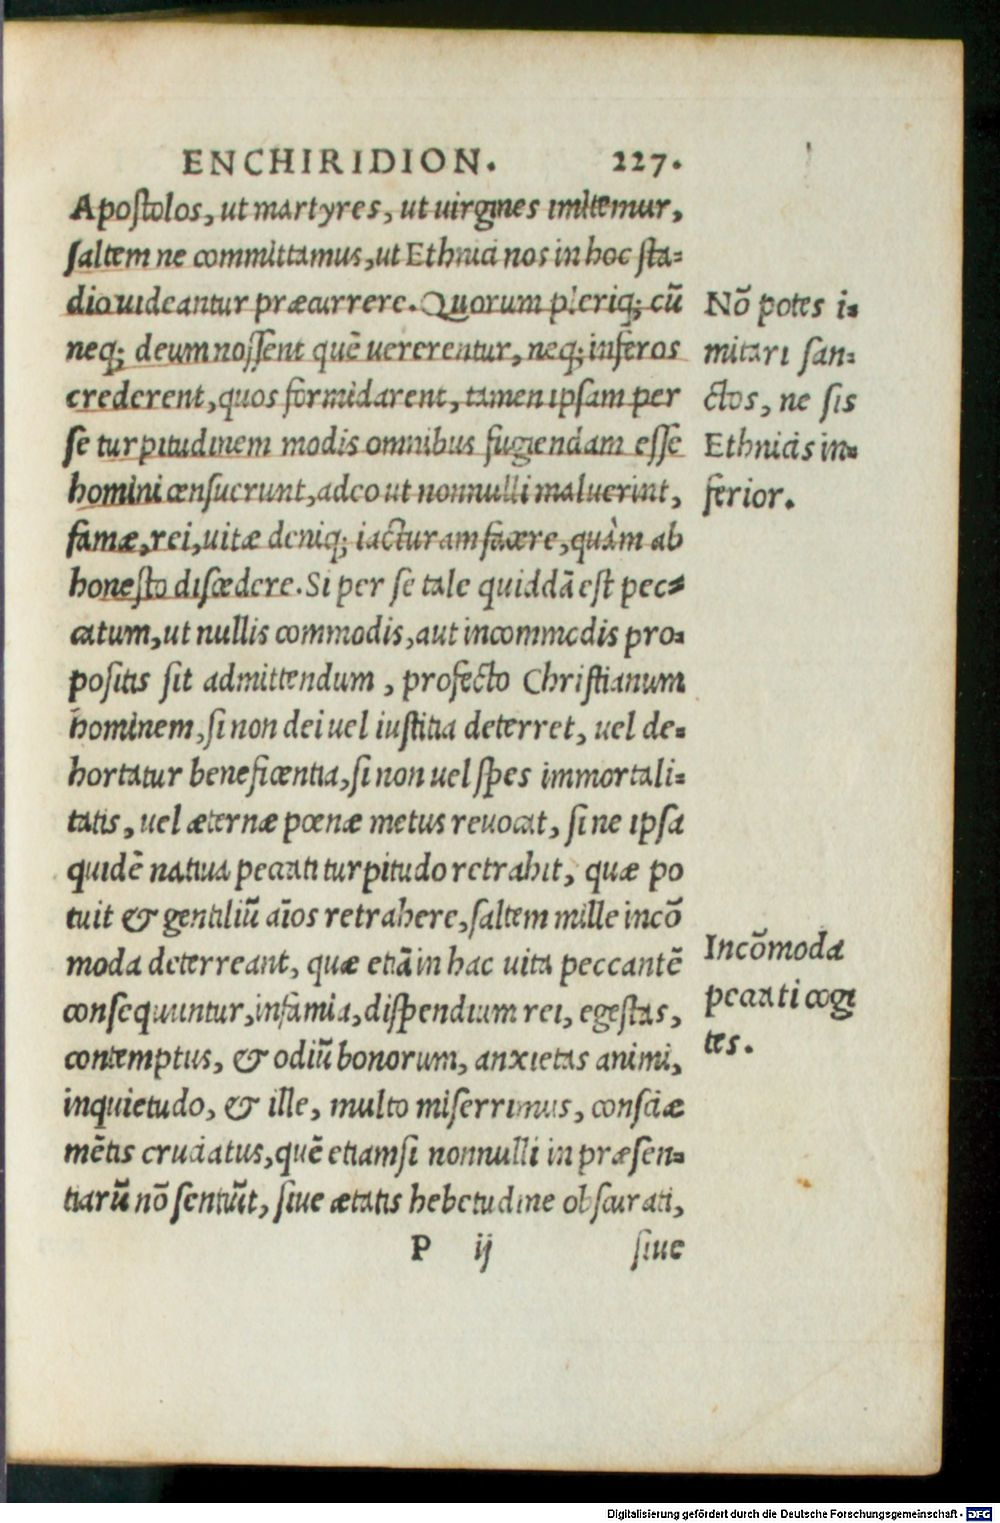 ENCHIRIDION. 227.
Apoſtolos, ut martyres, ut uirgines imitemur,
ſaltem ne committamus, ut Ethnici nos in hoc ſta-
dio uideantur præcurrere. Quorum pleriq; cū
neq; deum noſſent quē uererentur, neq; inferos
crederent, quos formidarent, tamen ipſam per
ſe turpitudinem modis omnibus fugiendam eſſe
homini cenſuerunt, adeo ut nonnulli maluerint,
famæ, rei, uitæ deniq; iacturam facere, quàm ab
honeſto diſcedere. Si per ſe tale quiddā eſt pec-
catum, ut nullis commodis, aut incommodis pro-
poſitis ſit admittendum, profecto Chriſtianum
hominem, ſi non dei uel iuſtitia deterret, uel de-
hortatur beneficentia, ſi non uel ſpes immortali-
tatis, uel æternæ pœnæ metus reuocat, ſi ne ipſa
quidē natiua peccati turpitudo retrahit, quæ po
tuit & gentiliū aīos retrahere, ſaltem mille incō
moda deterreant, quæ etiā in hac uita peccantē
conſequuntur, infamia, diſpendium rei, egeſtas,
contemptus, & odiū bonorum, anxietas animi,
inquietudo, & ille, multo miſerrimus, conſciæ
mētis cruciatus, quē etiamſi nonnulli in præſen-
tiarū nō ſentiūt, ſiue ætatis hebetudine obſcurati,
P ij ſiue
Nō potes i-
mitari ſan-
ctos, ne ſis
Ethnicis in-
ferior.
Incōmoda
peccati cogi
tes.
Digitalisierung gefördert durch die Deutsche Forschungsgemeinschaft - DFG